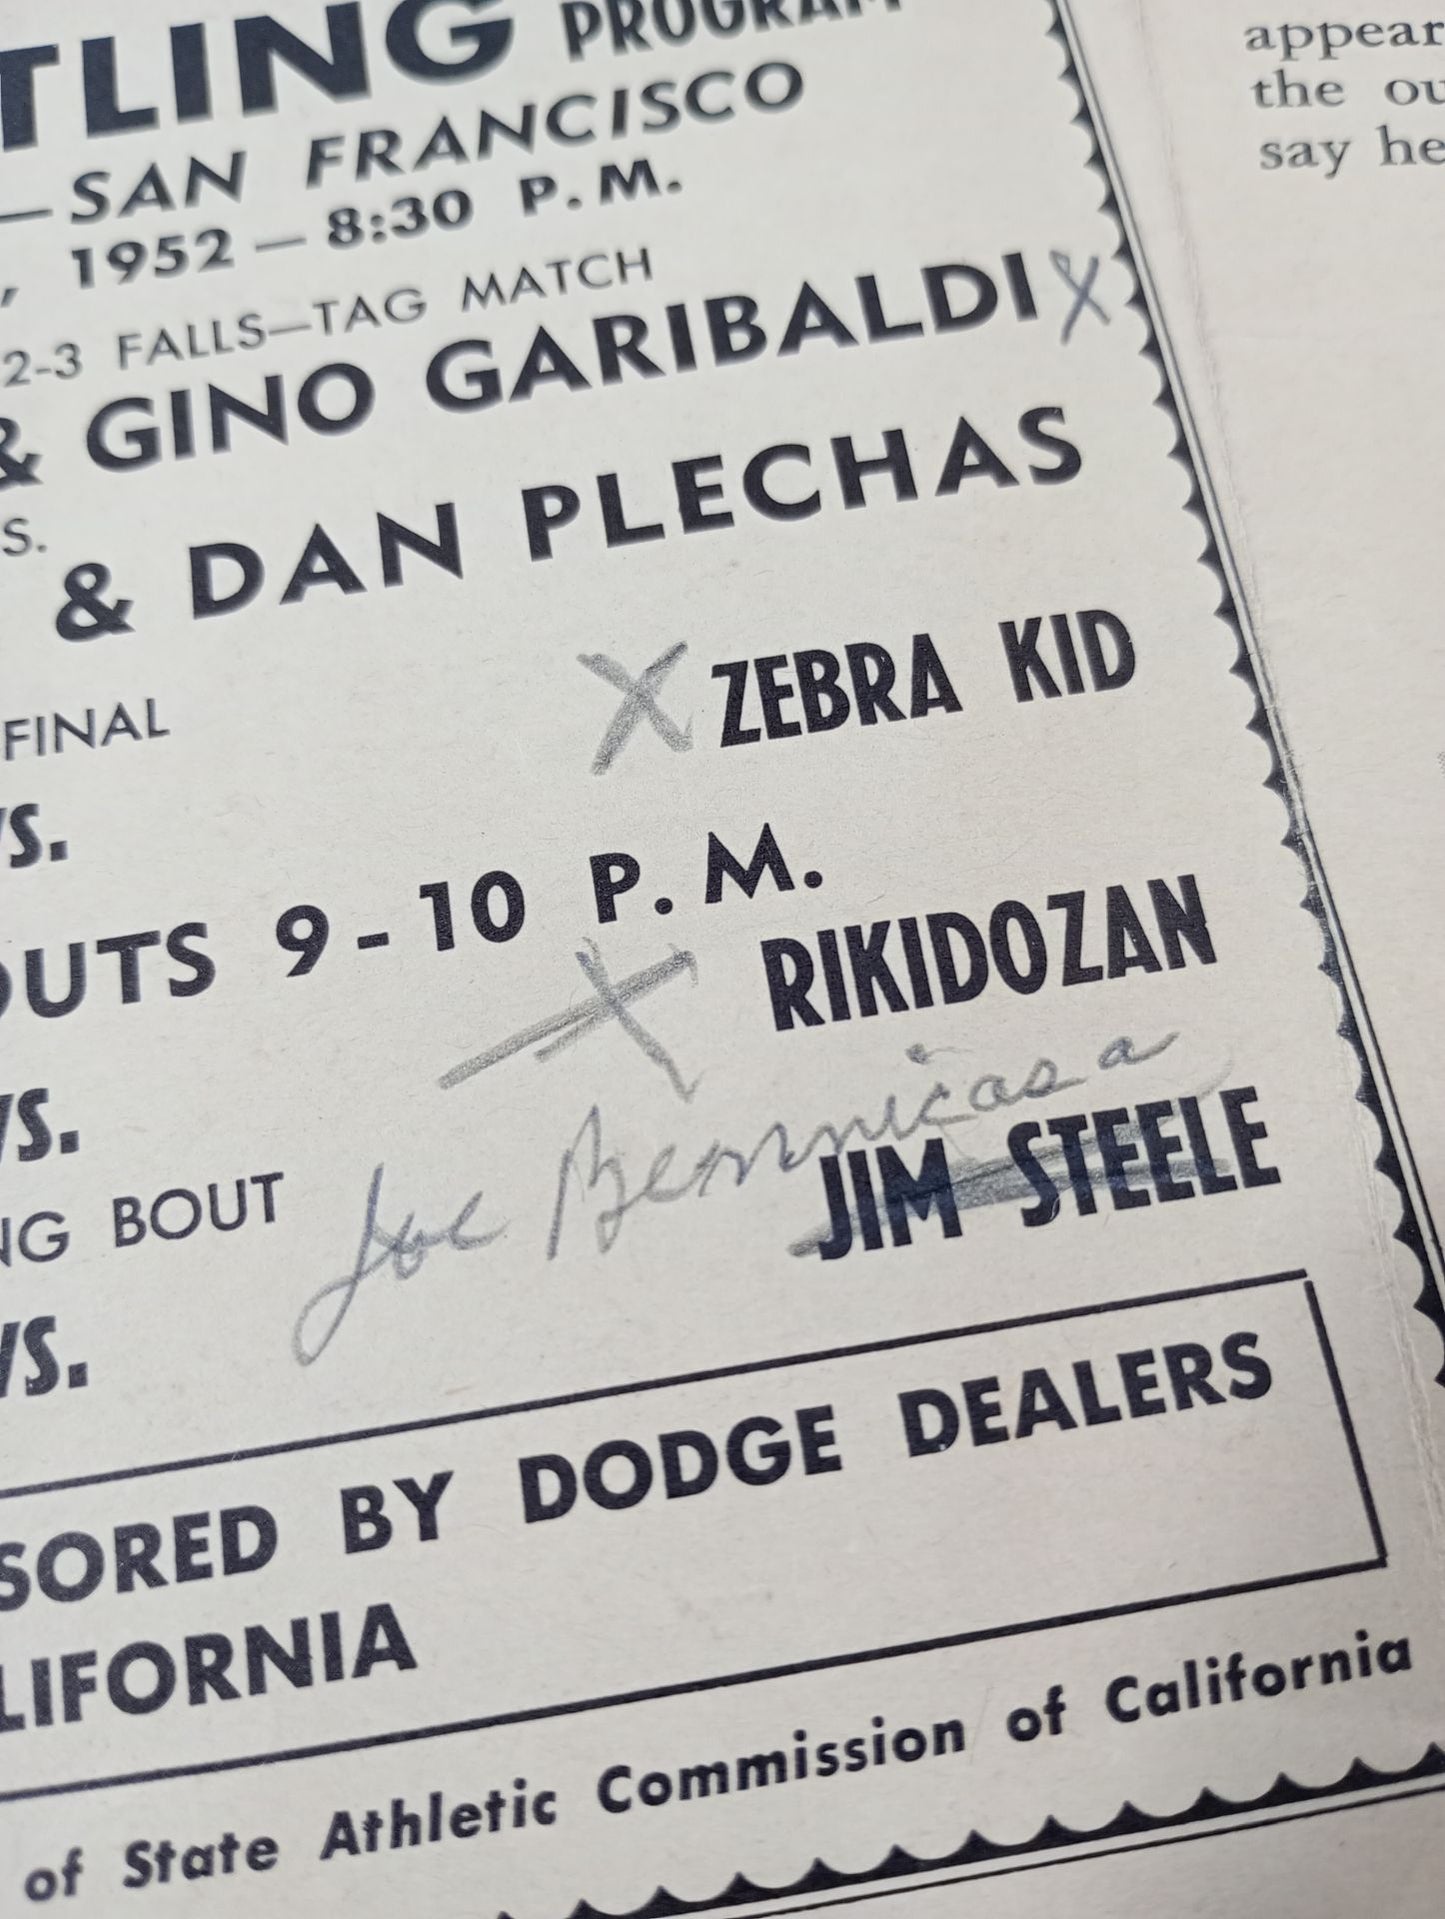 TLING PROGRAM
—SAN FRANCISCO
, 1952—8:30 P.M.
2-3 FALLS—TAG MATCH
& GINO GARIBALDI X
S.
& DAN PLECHAS
FINAL
X ZEBRA KID
VS.
OUTS 9-10 P.M.
X RIKIDOZAN
VS.
Joe Bennicasa
NG BOUT
JIM STEELE
VS.
SORED BY DODGE DEALERS
LIFORNIA
of State Athletic Commission of California
appear
the ou
say he